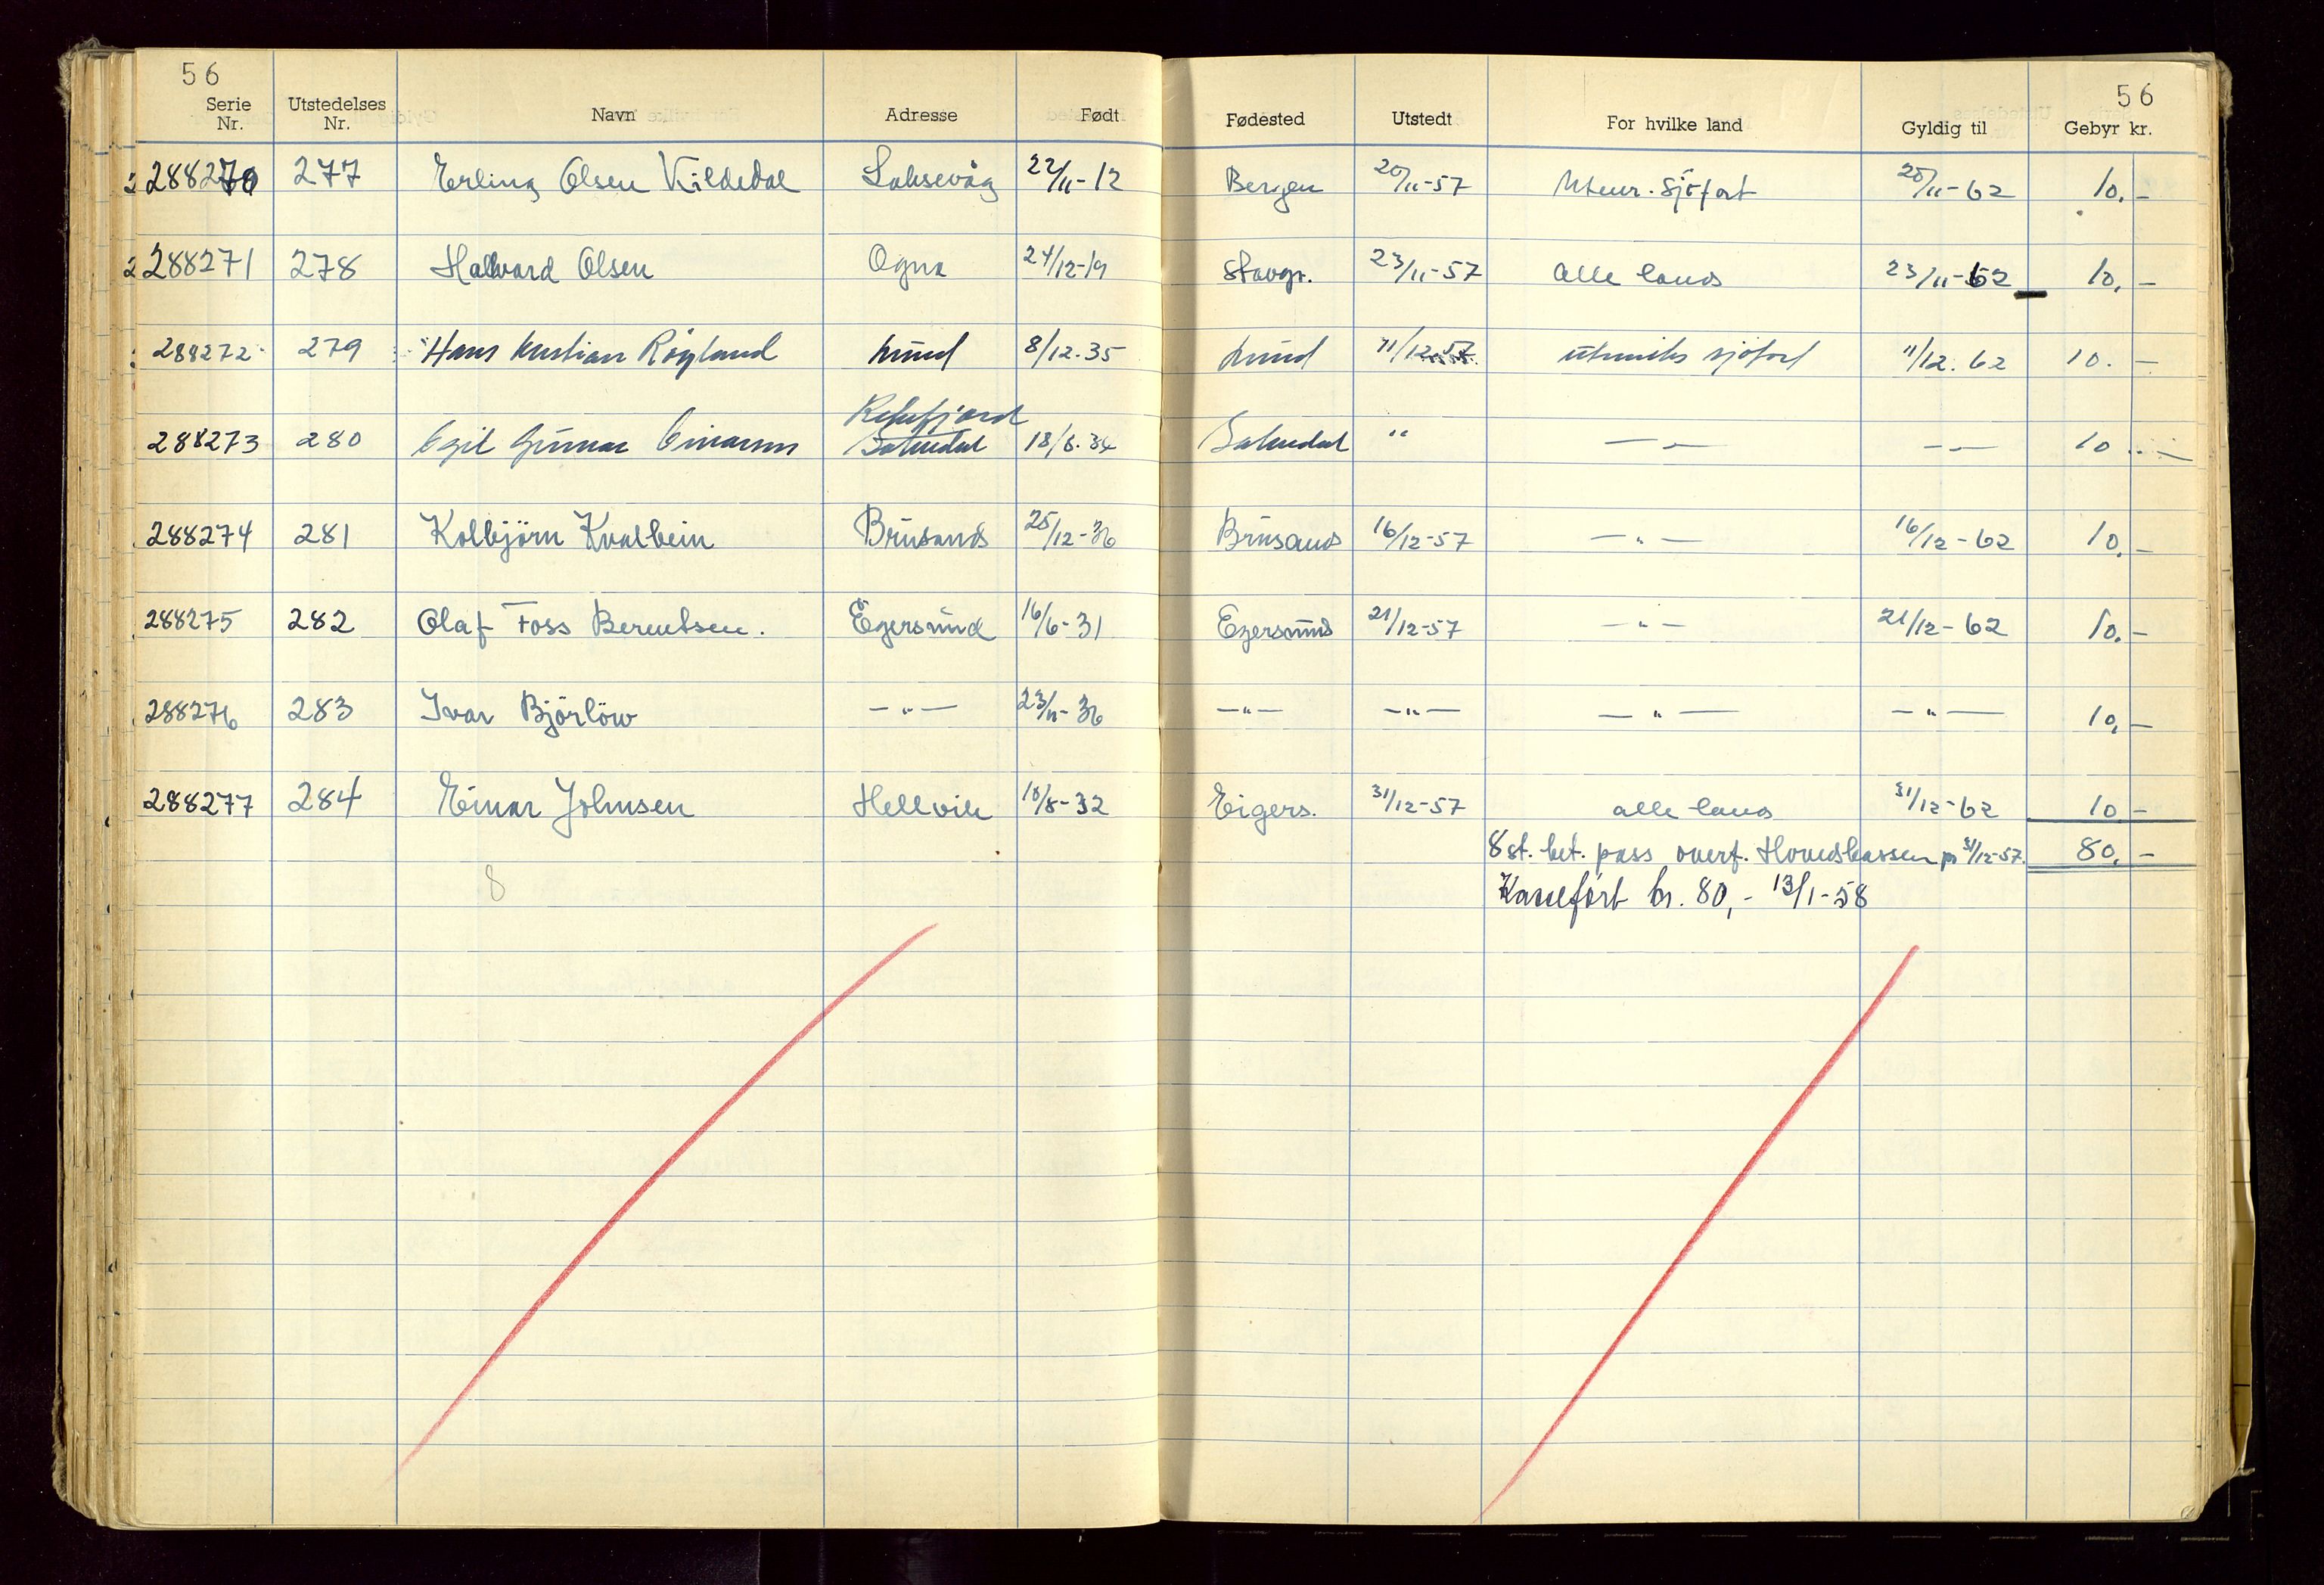 56
56
Serie Nr. Utstedelses Nr. Navn Adresse Født Fødested Utstedt For hvilke land Gyldig til Gebyr kr.
288270 277 Erling Olsen Kildedal Laksevåg 22/11-12 Bergen 20/11-57 Utenr. sjöfart 20/11-62 10,-
288271 278 Hallvard Olsen Ogna 24/12-19 Stavgr. 23/11-57 alle land 23/11-62 10,-
288272 279 Hans Kristian Rögland Lund 8/12.35 Lund 11/12.57. utenriks sjöfart 11/12.62 10. -
Rekefjord
288273 280 Egil Gunnar Einarsen 18/8.34 " - " - - " - 10 -
288274 281 Kolbjörn Kvalbein Brusand 25/12-36 Brusand 16/12-57 - " - 16/12-62 10,-
288275 282 Olaf Foss Berentsen. Egersund 16/6-31 Egersund 21/12-57 - " - 21/12-62 10,-
288276 283 Ivar Björlöw - " - 23/11-36 - " - - " - - " - - " - 10,-
288277 284 Einar Johnsen Hellvik 10/8-32 Eigers. 31/12-57 alle land 31/12-62 10 -
8 st. bet. pass overf. Hovedkassen pr 31/12-57. 80,-
8
Kasseført kr. 80,- 13/1-58